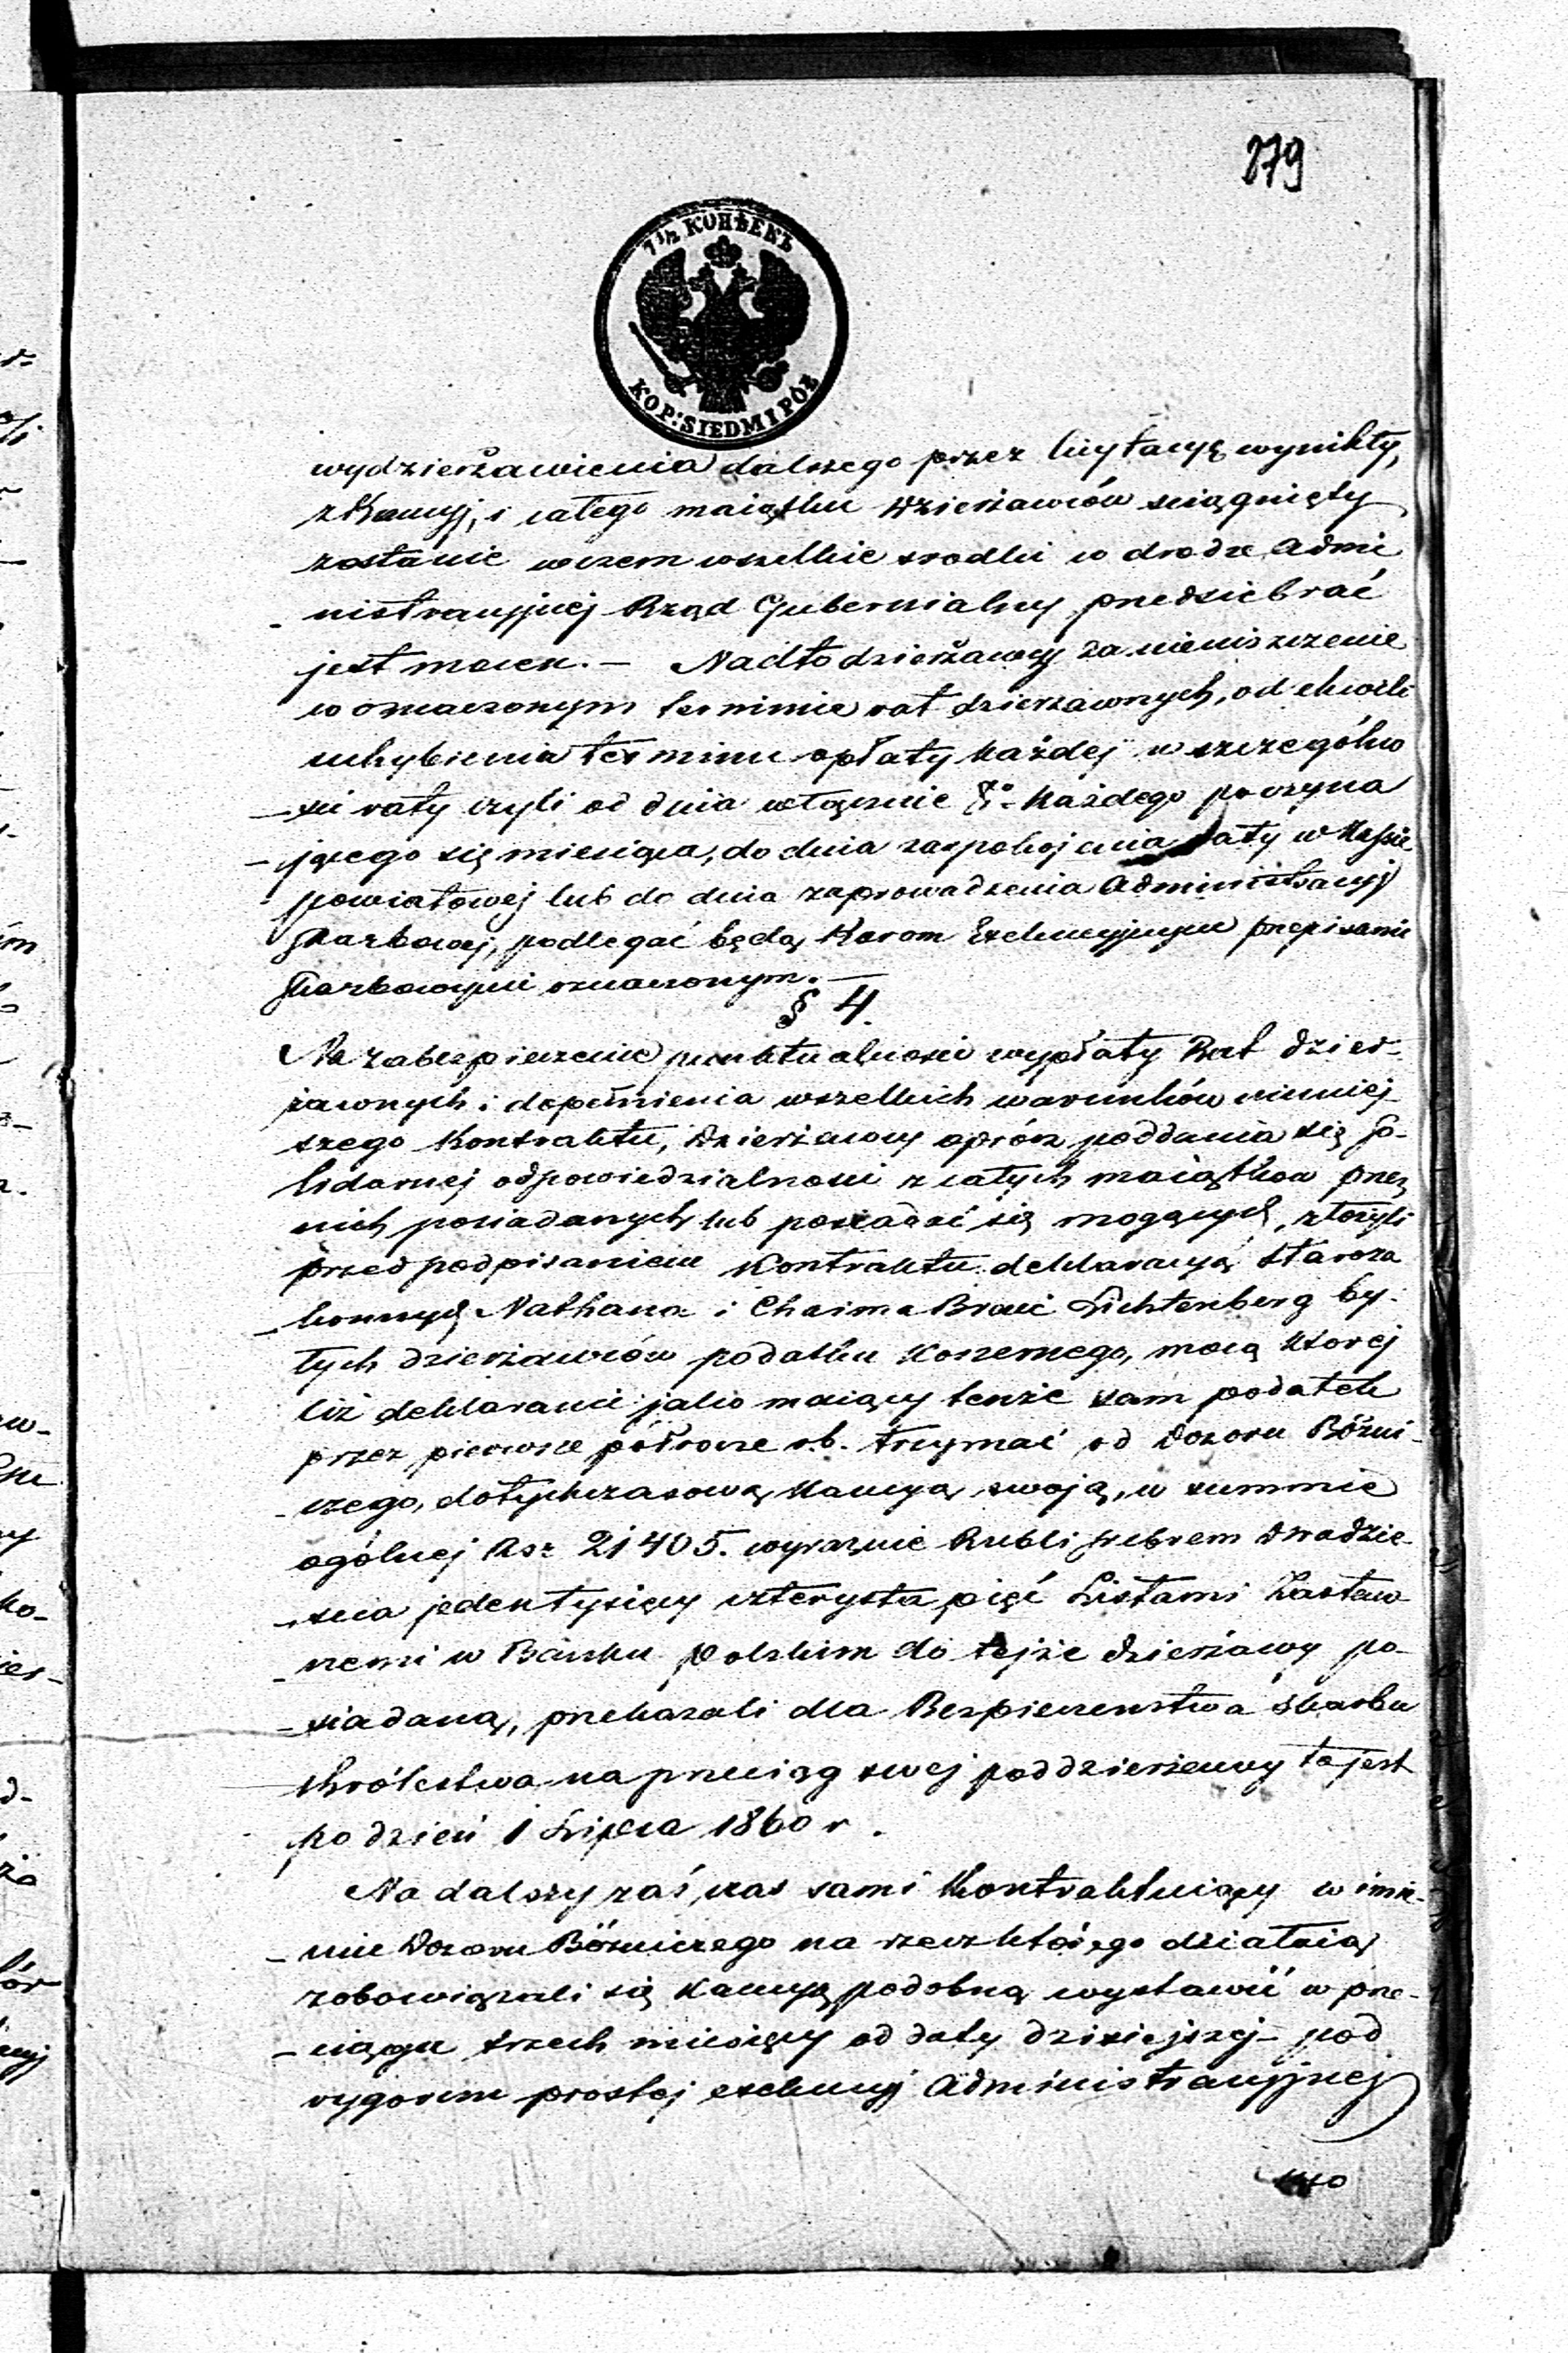 879
7½ КОПѢЕКЪ
KOP: SIEDM I PÓŁ
wydzierżawienia dalszego przez licytacyę wynikły,
z Kaucyj, i całego maiątku Dzierżawców sciągnięty
zostanie wczem wszelkie srodki w drodze Admi
nistracyjnej Rząd Gubernialny przedsiebrać
jest mocen. — Nadto dzierżawcy za nieuiszczenie
w oznaczonym terminie rat dzierżawnych, od chwili
uchybienia terminu opłaty każdej w szczególno
-sci raty czyli od dnia włącznie każdego poczyna
-jącego się miesiąca, do dnia zaspokojenia raty w Kassie
powiatowej lub do dnia zaprowadzenia Administracyj
Skarbowej, podlegać będą Karom Exekucyjnym przepisami
Skarbowymi oznaczonym. —
§ 4.
Na zabezpieczenie punktualnosci wypłaty Rat dzier-
żawnych i dopełnienia wszelkich warunków niniej
szego Kontraktu, Dzierżawcy oprócz poddania się So-
lidarnej odpowiedzialnosci z całych maiątków przez
nich posiadanych lub posiadać się mogących, złożyli
przed podpisaniem Kontraktu deklaracyą Staroza
-konnych Nathana i Chaima Braci Lichtenberg by-
łych dzierżawców podatku Koszernego, mocą Ktorej
ciż deklaranci jako maiący tenże sam podatek
przez pierwsze półrocze r.b. trzymać od Dozoru Bóżni-
-czego, dotychczasową Kaucyą swoją, w summie
ogólnej Rsr 21405. wyraznie Rubli srebrem dwadzie-
-scia jeden tysięcy czterysta pięć Listami Zastaw
-nemi w Banku Polskim do tejże dzierżawy po-
-siadaną, przekazali dla Bezpieczenstwa Skarbu
Królestwa na przeciąg swej poddzierżawy to jest
po dzień 1 Lipca 1860 r.
Na dalszy zaś czas sami Kontraktuiący w imie-
-niu Dozoru Bóżniczego na rzecz którego działaią
zobowiązali się Kaucyą podobną wystawić w prze-
-ciągu trzech miesięcy od daty dzisiejszej pod
rygorem prostej exekucyj Administracyjnej